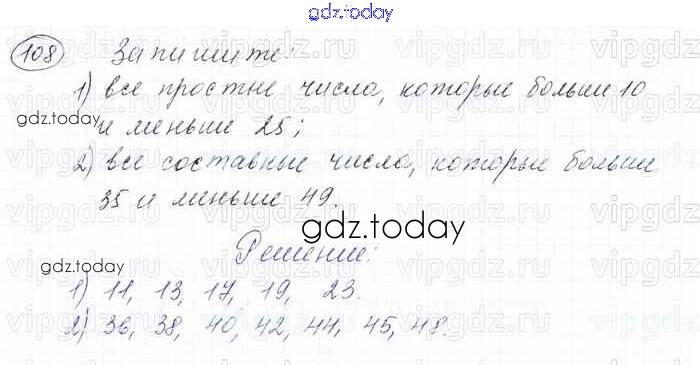 gdz.today
108 Запишите:
1) все простые числа, которые больше 10
gdz.today
и меньше 25;
2) все составные числа, которые больше
35 и меньше 49.
gdz.today
Решение:
gdz.today
1) 11, 13, 17, 19, 23.
2) 36, 38, 40, 42, 44, 45, 48.